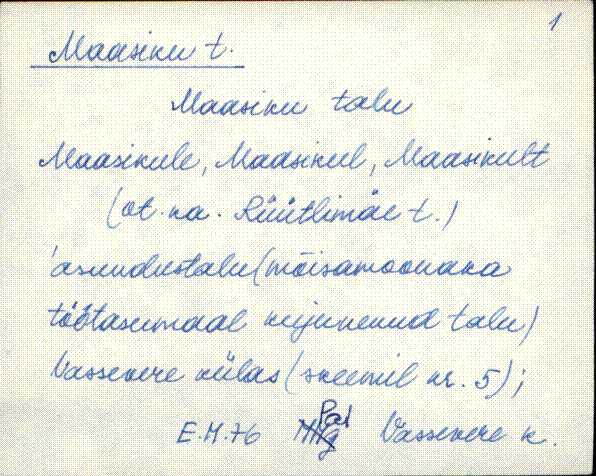 1
Maasiku t.
Maasiku talu
Maasikule, Maasikul, Maasikult
(vt. ka. Rüütlimäe t.)
asundustalu (mõisamoonaka
töötasumaal kujunenud talu)
Vassevere külas (skeemil nr. 5);
E.M.76 Pal Vassevere k.